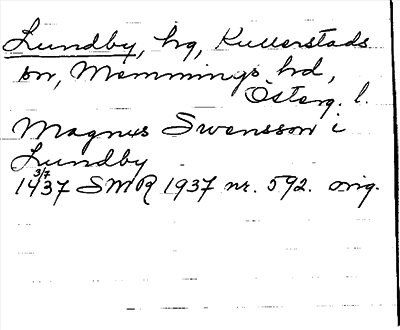 Lundby, hg, Kullerstads
sn, Memmings hd,
Österg. l.
Magnus Svensson i
Lundby
3/7
1437 SMR 1937 nr. 592. orig.